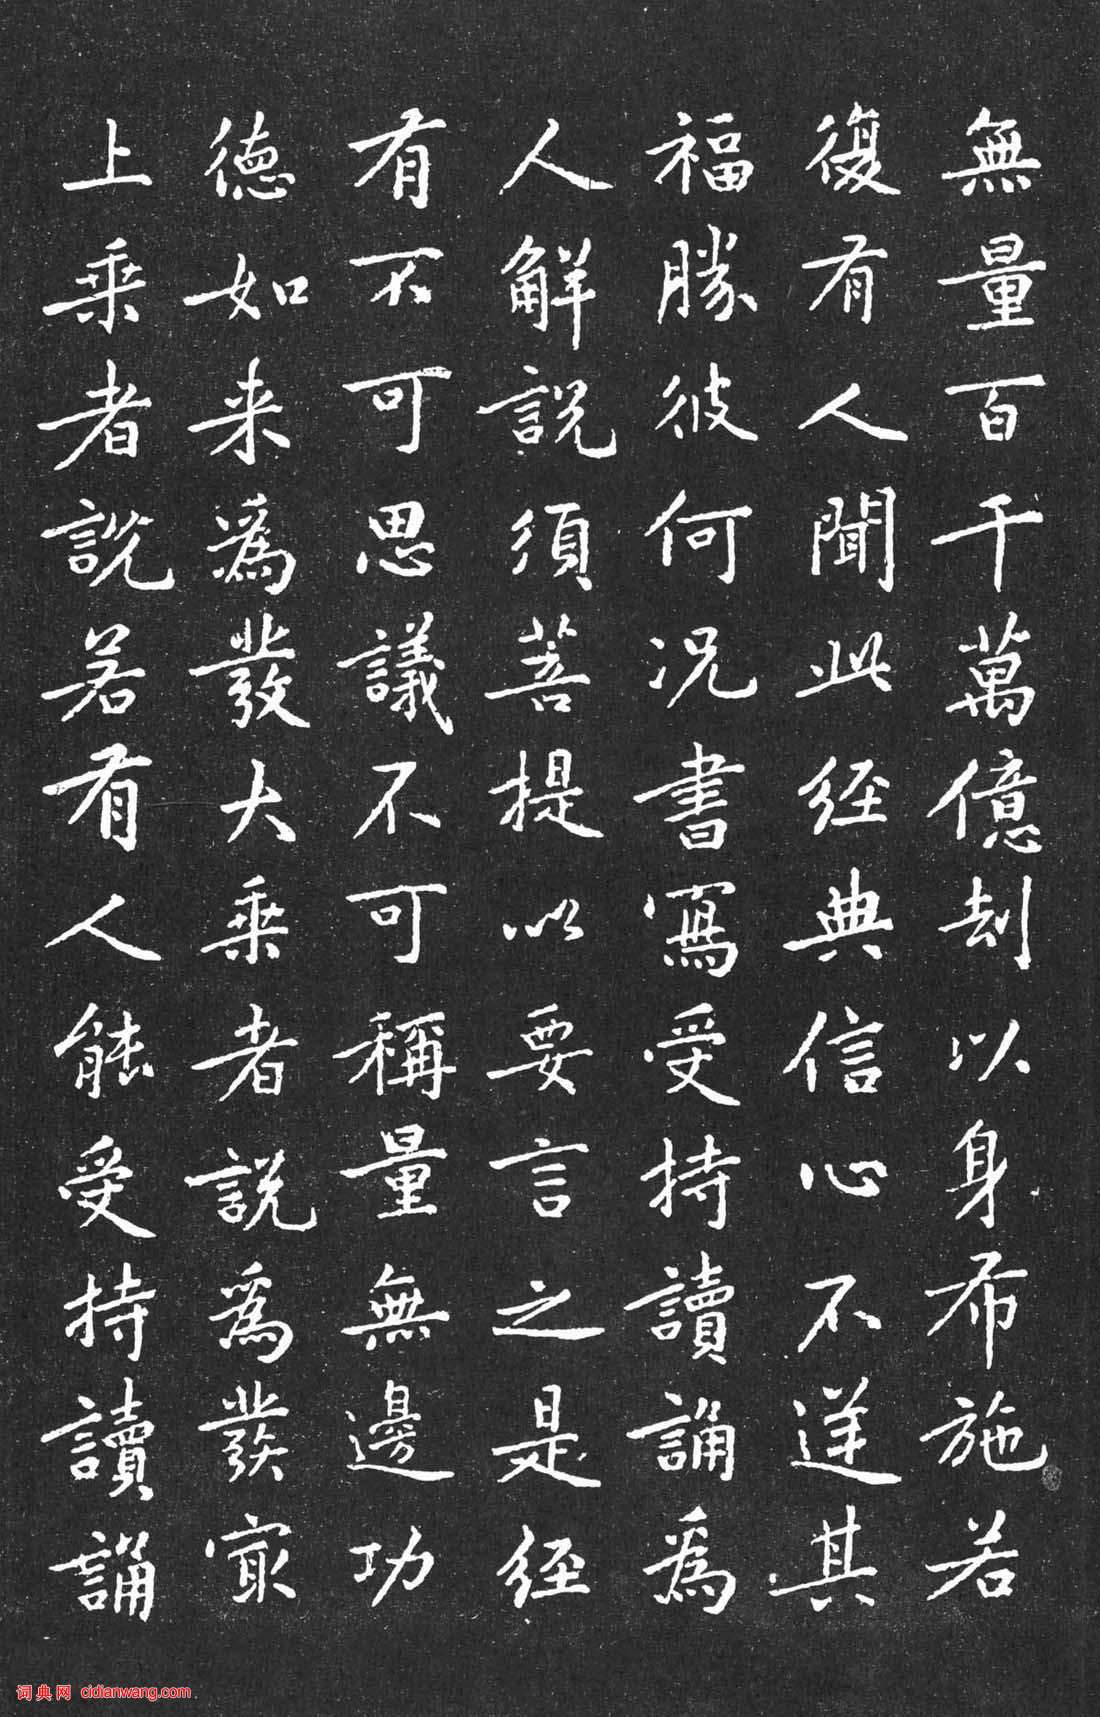 無量百千萬億刦以身布施若
復有人聞此経典信心不逆其
福勝彼何况書寫受持讀誦為
人解説須菩提以要言之是経
有不可思議不可稱量無邊功
德如来為發大乗者説為發寂
上乗者説若有人能受持讀誦
词典网 cidianwang.com